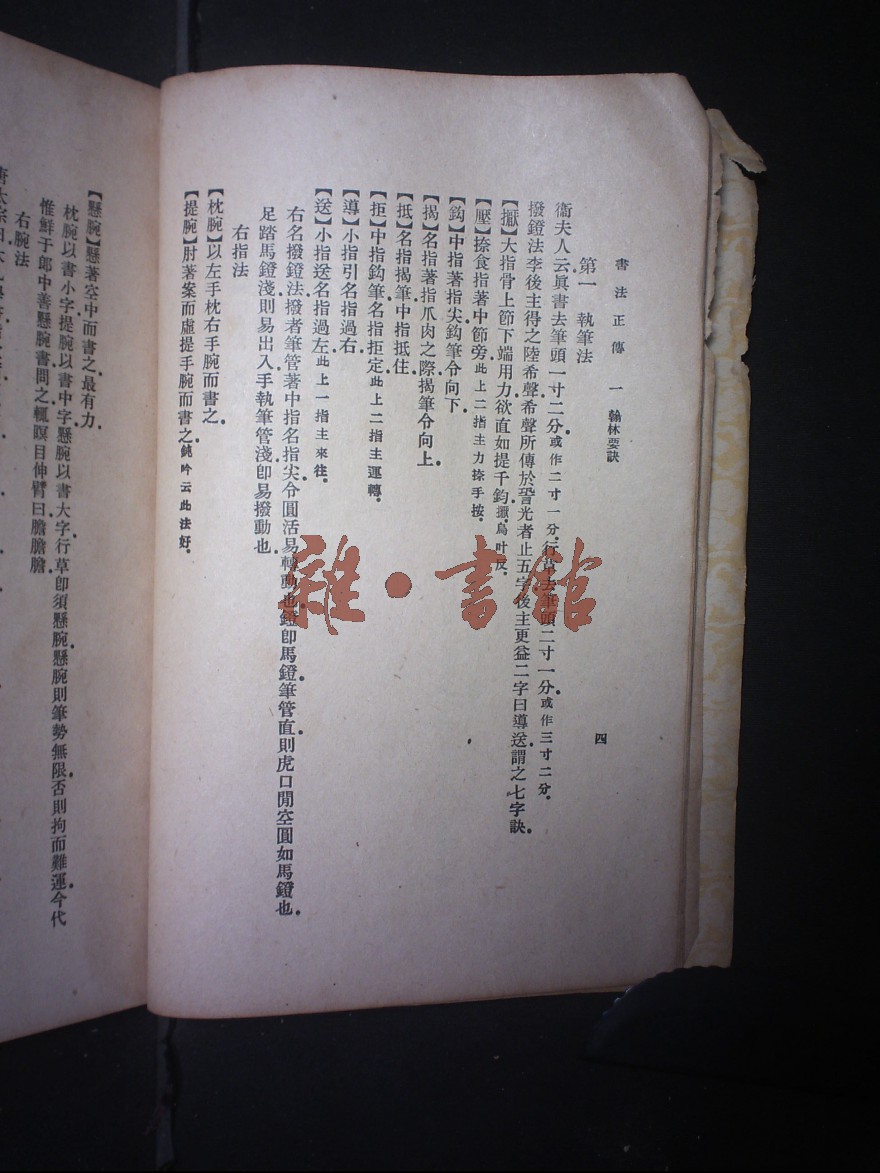 書法正傳　一　翰林要訣　四
第一　執筆法
衞夫人云眞書去筆頭一寸二分或作二寸一分行草去筆頭二寸一分或作三寸二分
撥鐙法李後主得之陸希聲希聲所傳於䛒光者止五字後主更益二字曰導送謂之七字訣
【擫】大指骨上節下端用力欲直如提千鈞擫烏叶反
【壓】捺食指著中節旁此上二指主力捺手按
【鈎】中指著指尖鈎筆令向下
【揭】名指著指爪肉之際揭筆令向上
【抵】名指揭筆中指抵住
【拒】中指鈎筆名指拒定此上二指主運轉
【導】小指引名指過右
【送】小指送名指過左此上一指主來往
右名撥鐙法撥者筆管著中指名指尖令圓活易轉動也鐙卽馬鐙筆管直則虎口間空圓如馬鐙也
足踏馬鐙淺則易出入手執筆管淺卽易撥動也
右指法
【枕腕】以左手枕右手腕而書之
【提腕】肘著案而虛提手腕而書之鈍吟云此法好
【懸腕】懸著空中而書之最有力
枕腕以書小字提腕以書中字懸腕以書大字行草卽須懸腕懸腕則筆勢無限否則拘而難運今代
惟鮮于郎中善懸腕書問之輒瞑目伸臂曰膽膽膽
右腕法
雜·書館